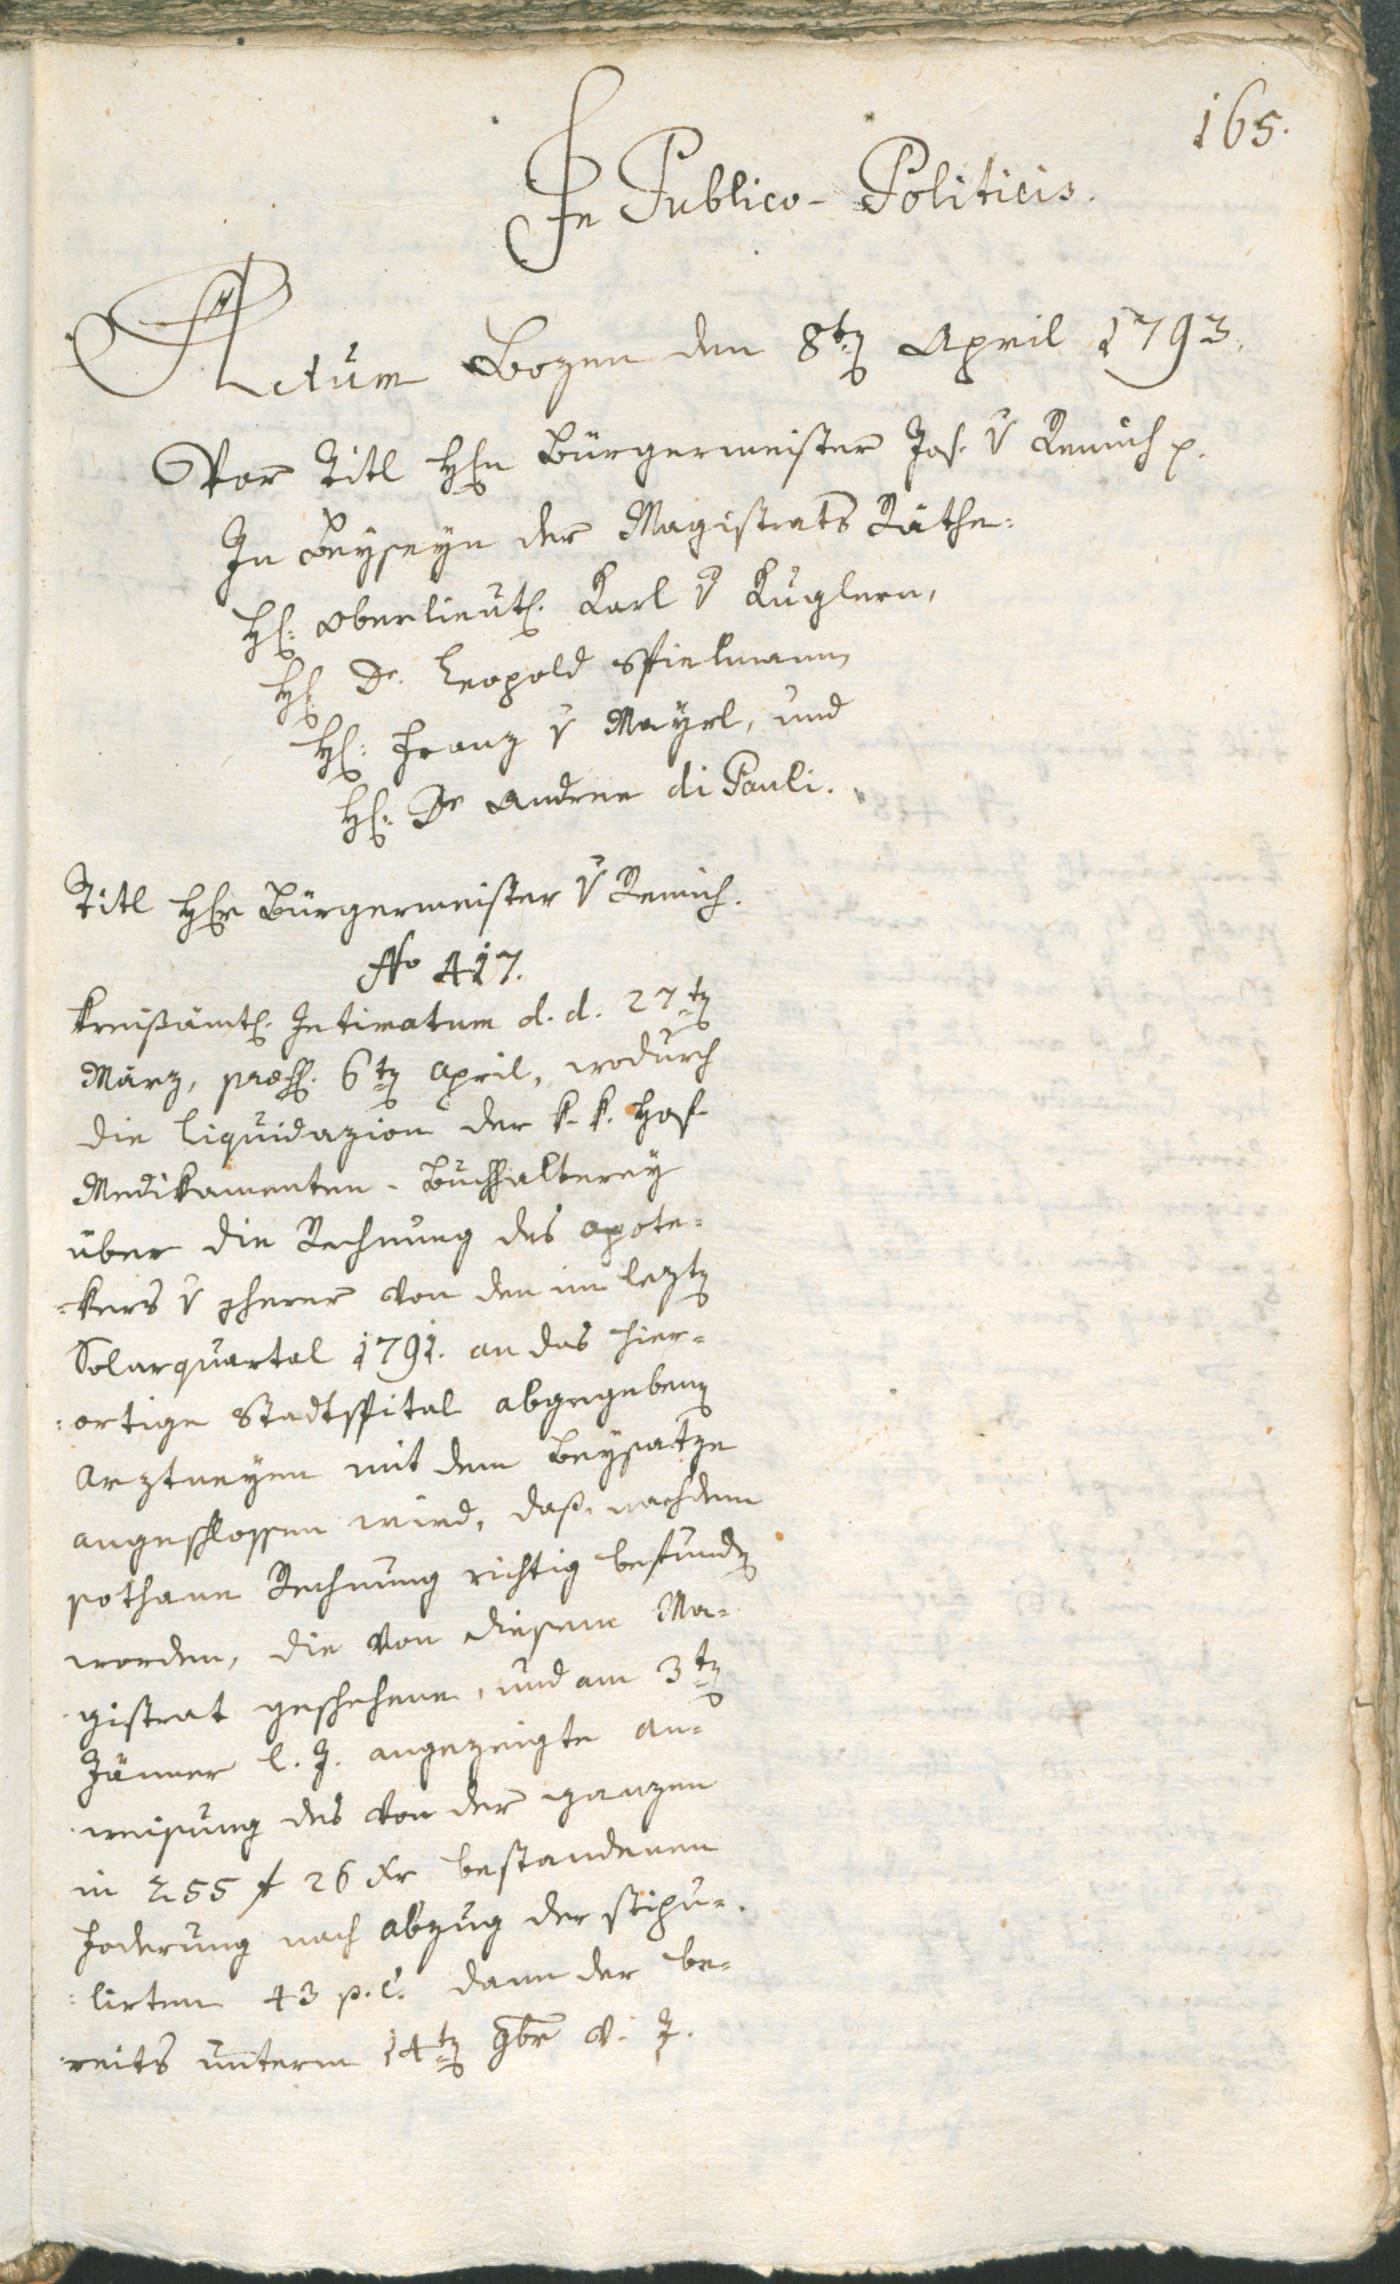 165.
In Publico-Politicis.
Actum Bozen den 8tn April 1793.
Vor Titl Hrn Bürgermeister Jos. v Remich p.
In Beyseyn der Magistrats Räthe:
H: Oberlieut. Karl v Kuglern,
H: Dr. Leopold Spielmann,
H: Franz v Mayrl, und
H: Dr Andree di Pauli.
Titl Hr Bürgermeister v Remich.
No 417.
Kreißämtl. Intimatum d. d. 27tn
März, præs. 6tn April, wodurch
die Liquidazion der k. k. Hof-
Medikamenten-Buchhalterey
über die Rechnung des Apote=
=kers v von den im leztn
Solarquartal 1791. an das hier=
=ortige Stadtspital abgegebenen
Arztneyen mit dem Beysatze
angeschlossen wird, daß, nachdem
sothane Rechnung richtig befunden
worden, die von diesem Ma=
gistrat geschehene, und am 3tn
Jänner l. J. angezeigte An=
weisung des von der ganzen
in 255 f 26 xr bestandenen
Foderung nach Abzug der stipu=
=lirten 43 p. C. dann der be=
reits unterm 14tn 9br v. J.